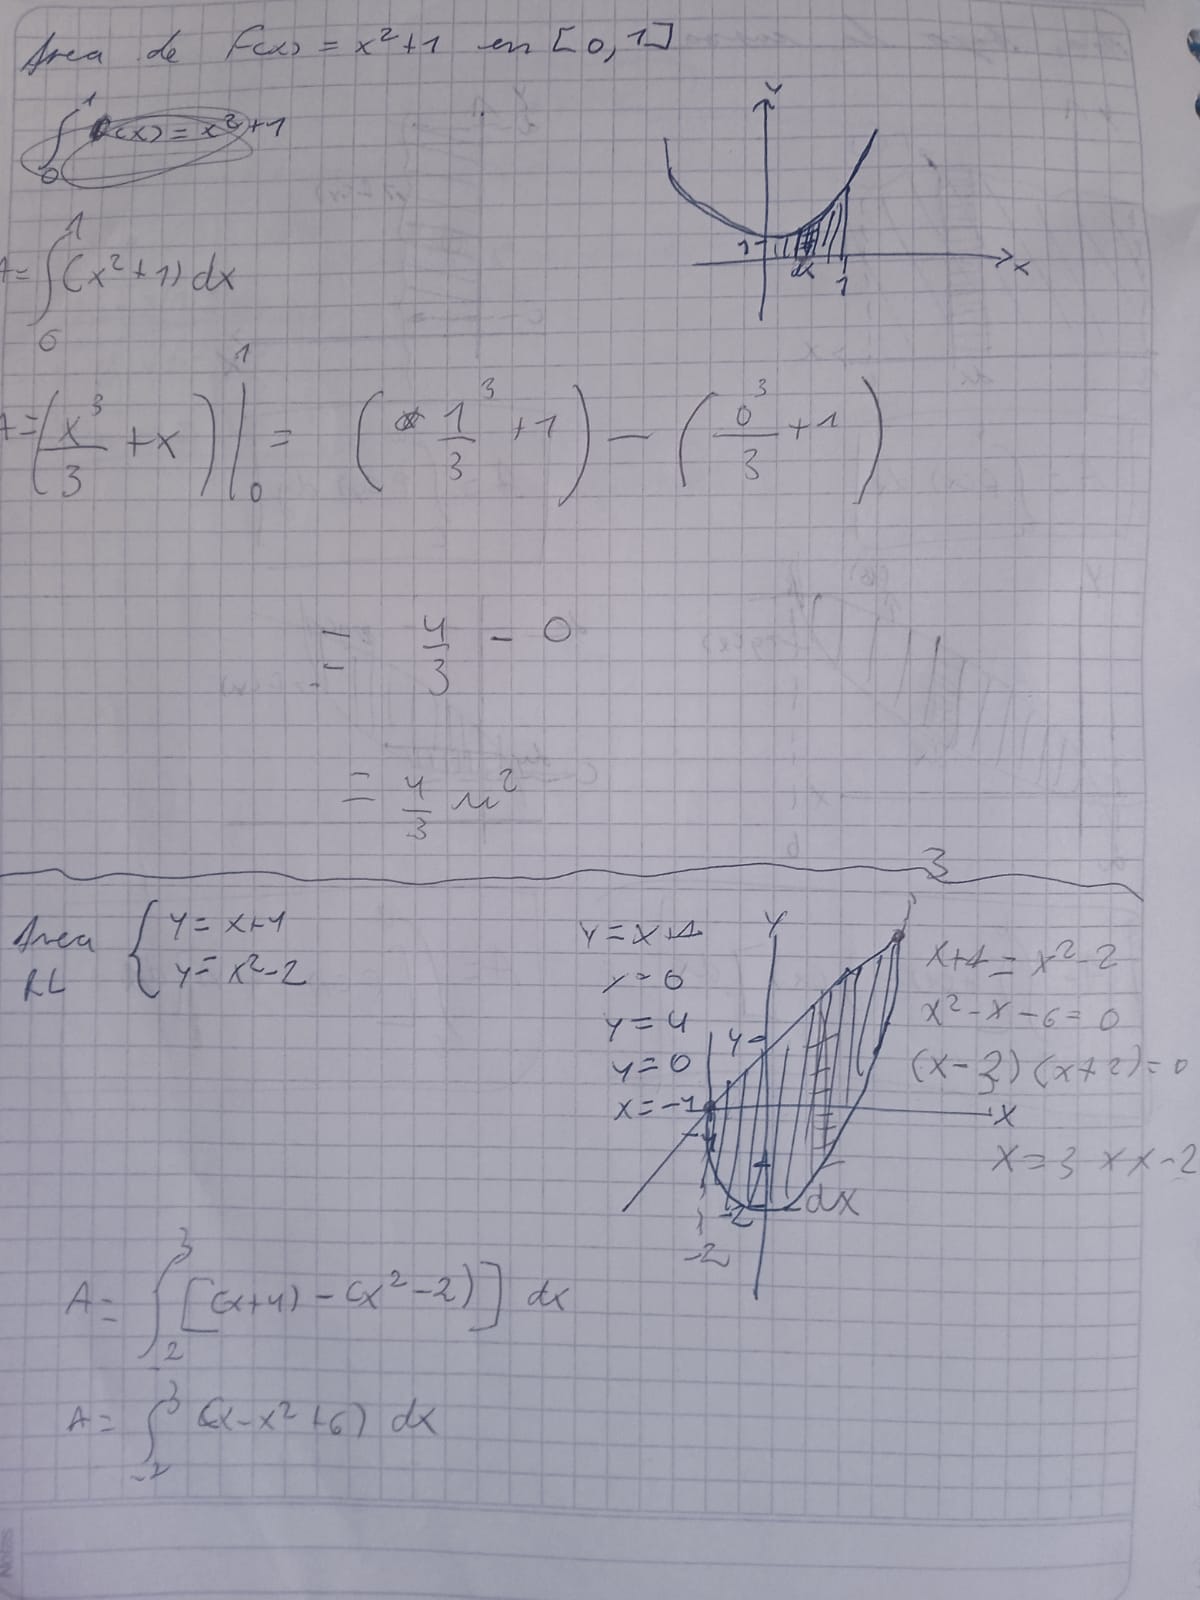 Area de F(x) = x²+1 en [0,1]
∫₀¹ f(x) = x²+1
Y
1
dx
1
x
A = ∫₀¹ (x²+1) dx
A = (x³/3 + x) |₀¹ = (1³/3 + 1) - (0³/3 + 1)
= 4/3 - 0
= 4/3 u²
Area RL { y = x+4
y = x²-2
y = x+4
x = 0
y = 4
y = 0
x = -4
Y
4
-4
x
-2
dx
-2
x+4 = x²-2
x²-x-6 = 0
(x-3)(x+2) = 0
x = 3 x x-2
A = ∫₋₂³ [(x+4) - (x²-2)] dx
A = ∫₋₂³ (x-x²+6) dx
Notes